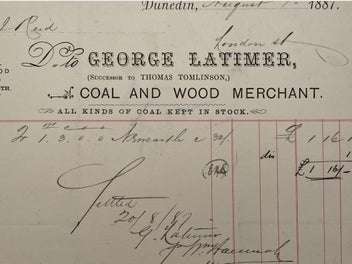 Dunedin, August 1881.
Reid
London St
Dr. to GEORGE LATIMER,
(SUCCESSOR TO THOMAS TOMLINSON,)
COAL AND WOOD MERCHANT.
ALL KINDS OF COAL KEPT IN STOCK.
To 1.3.0.0 Newcastle @ 32/- £ 1 16
dis
£ 1 16/-
Settled
20/8/81
G. Latimer